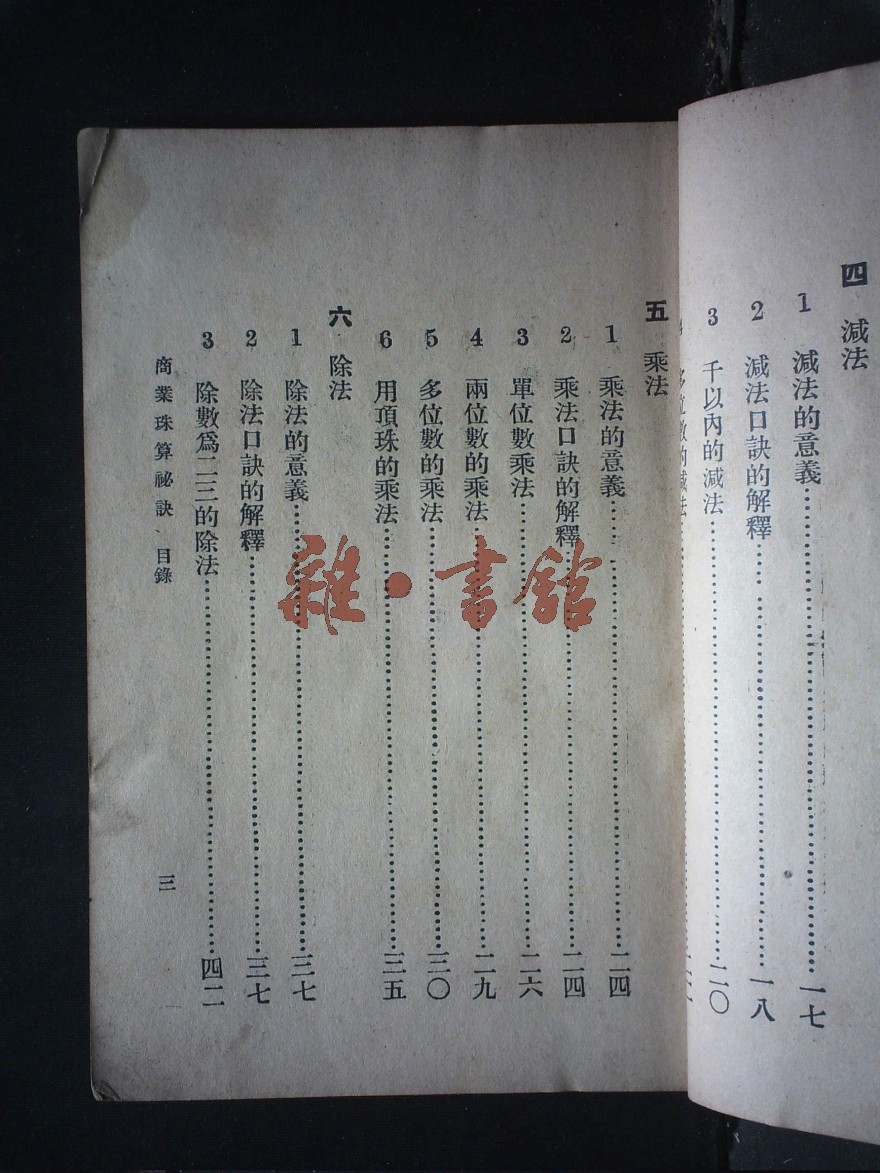 四 減法
1 減法的意義……一七
2 減法口訣的解釋……一八
3 千以內的減法……二〇
4 多位數的減法……
五 乘法
1 乘法的意義……二四
2 乘法口訣的解釋……二四
3 單位數乘法……二六
4 兩位數的乘法……二九
5 多位數的乘法……三〇
6 用頂珠的乘法……三五
六 除法
1 除法的意義……三七
2 除法口訣的解釋……三七
3 除數爲二三的除法……四二
商業珠算祕訣、目錄 三
雜·書館